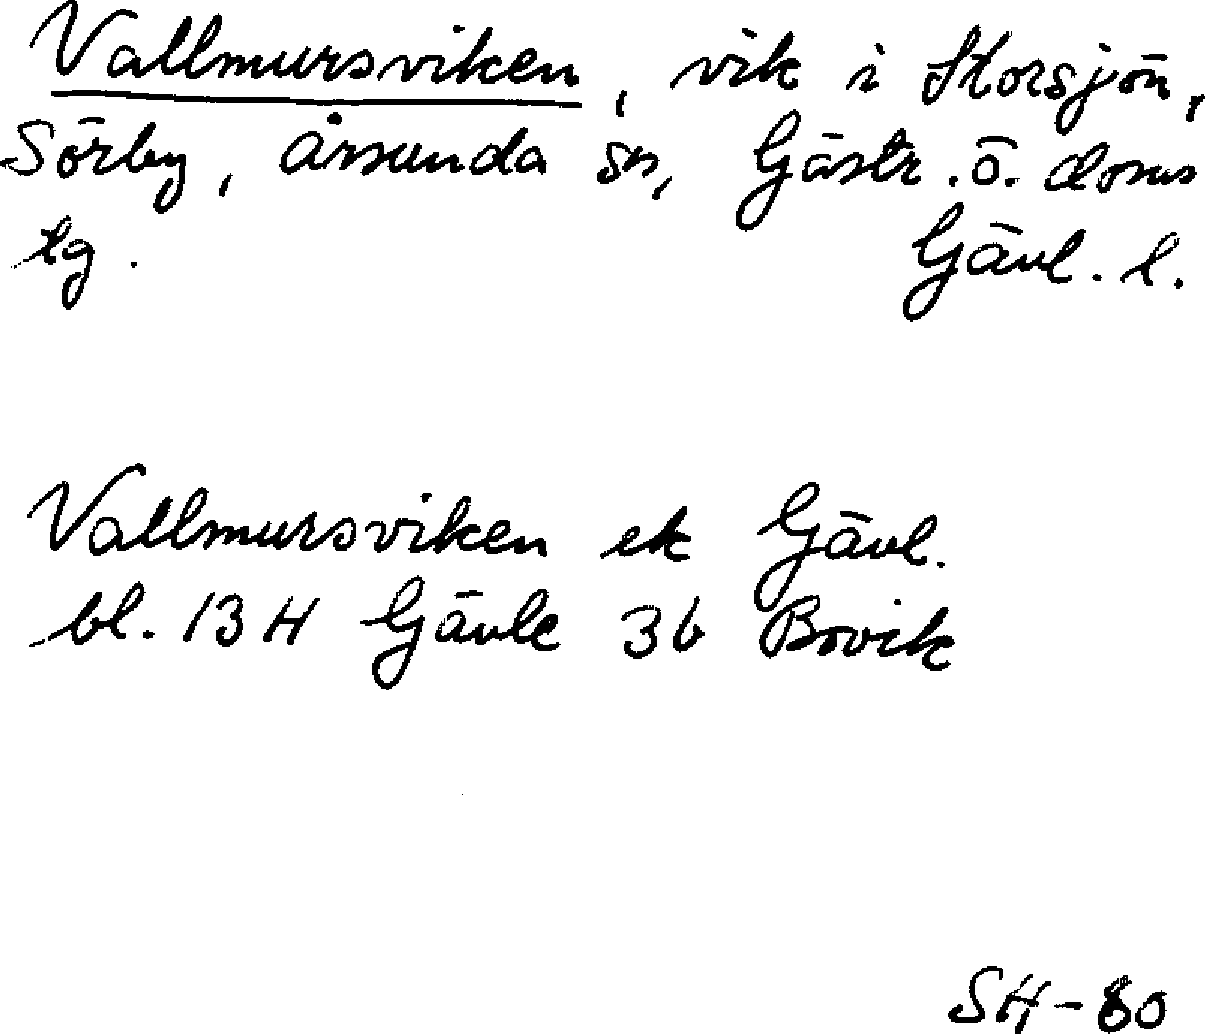 Vallmursviken, vik i Storsjön,
Sörby, Årsunda sn, Gästr. ö. doms
tg. Gävl. l.
Vallmursviken ek Gävl.
bl. 13 H Gävle 3b Brovik
SH-80